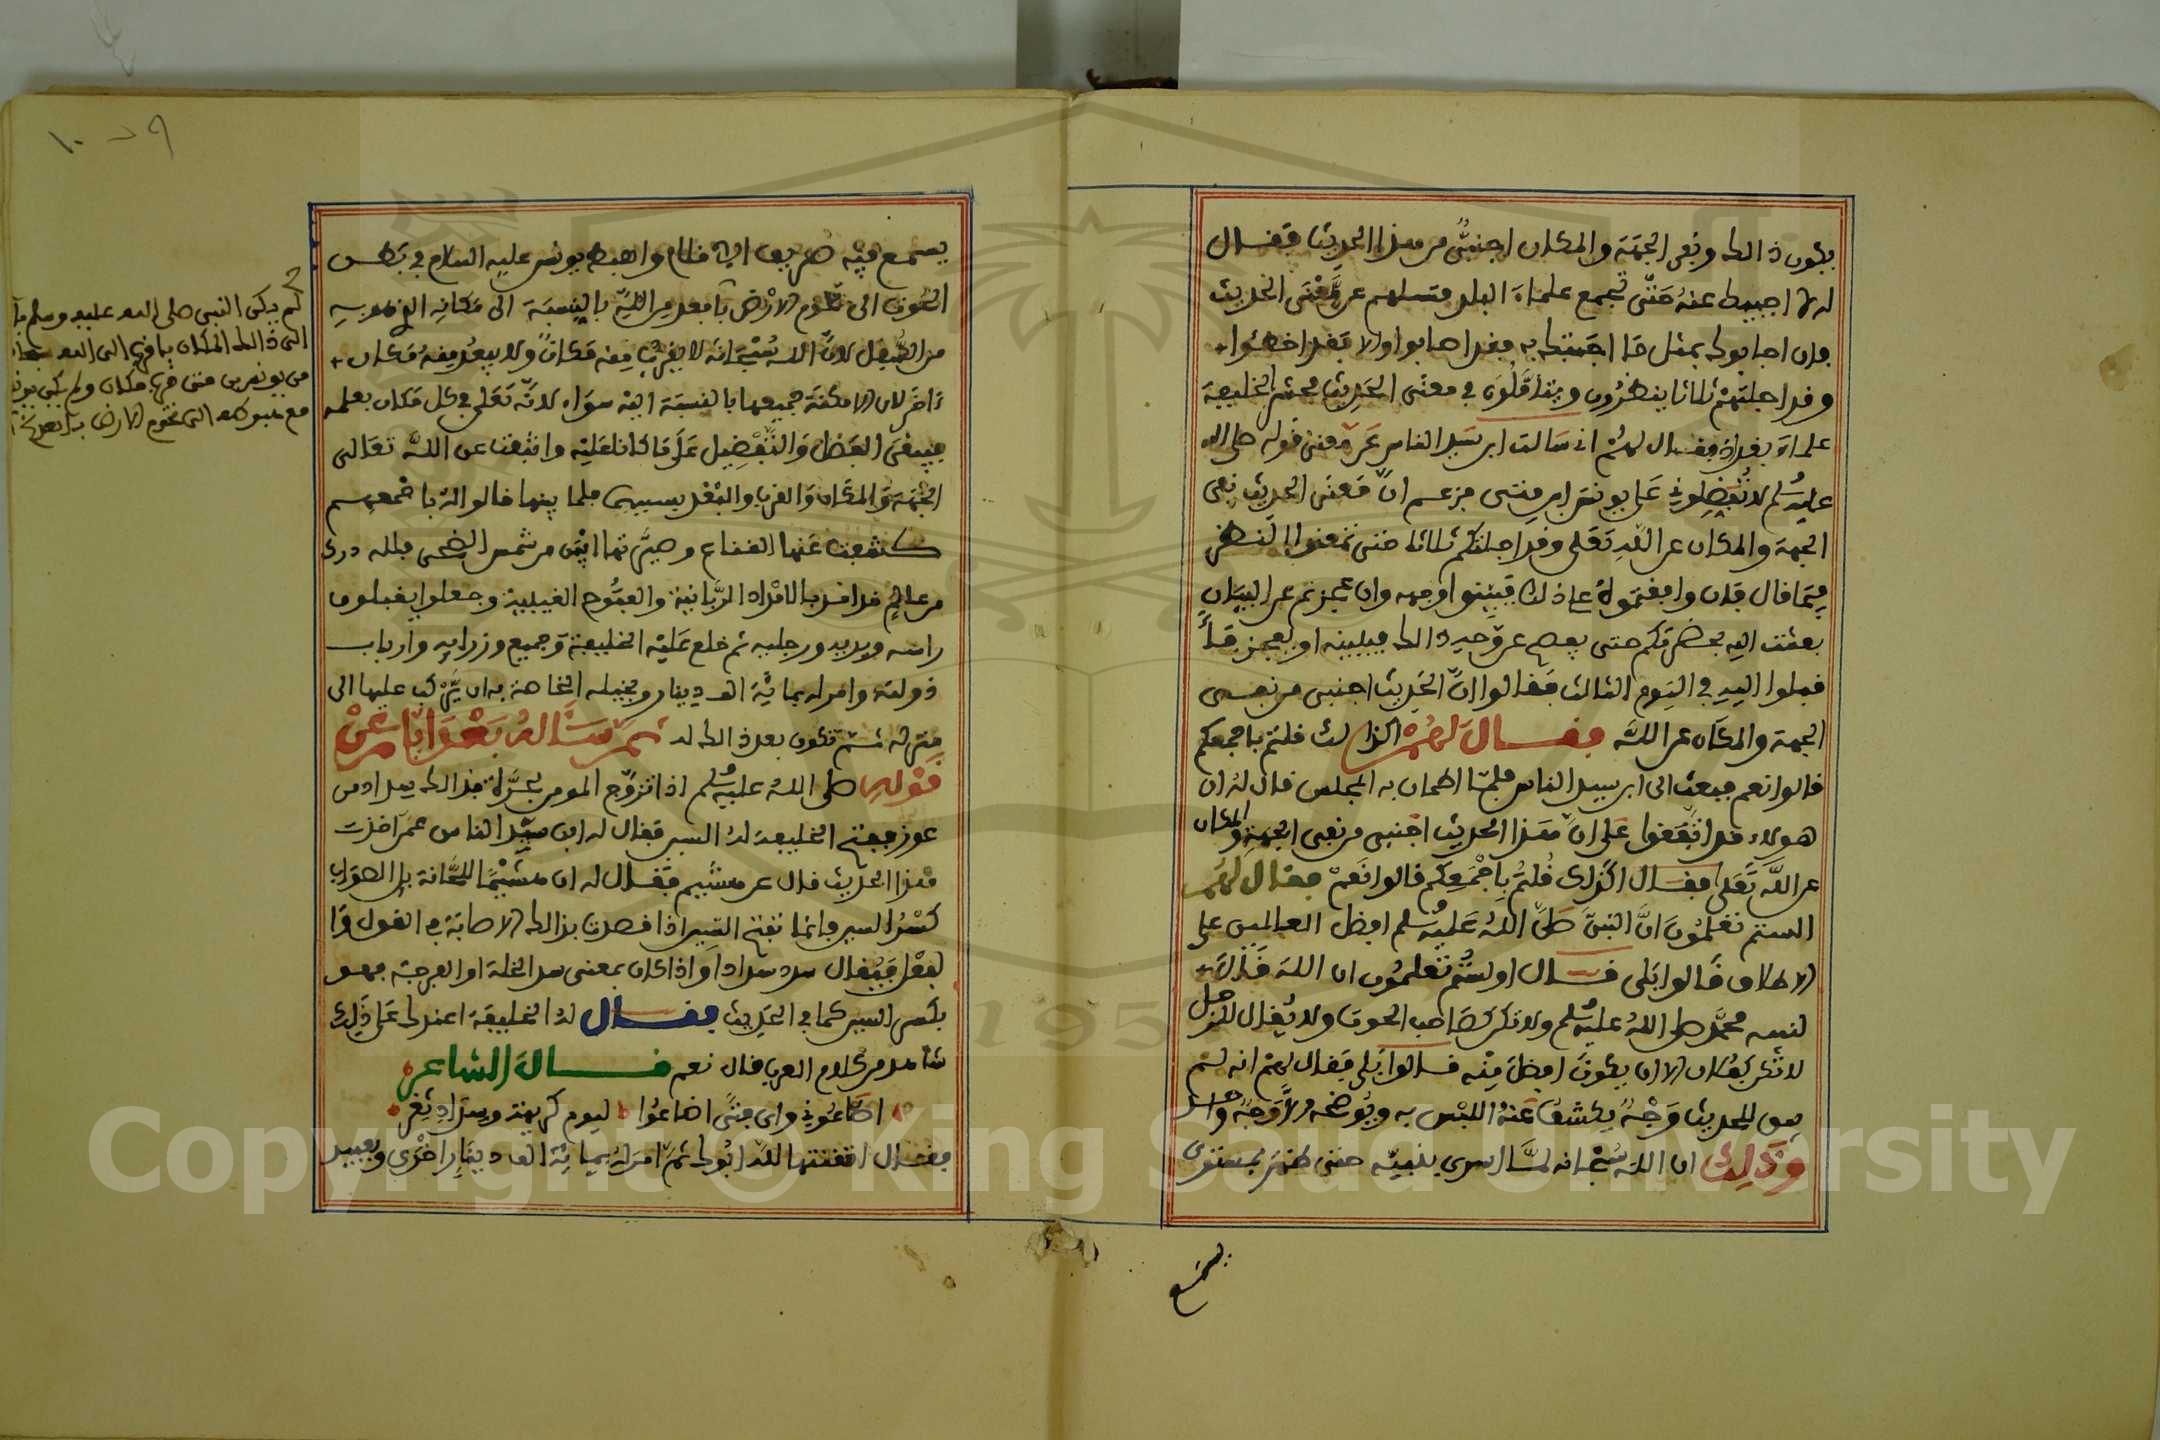 يكون ذالك ونفي الجهة والمكان اجنبي من هذا الحديث فقال
له لا اجيبك عنه حتى تجمع علماء البلد وتسلهم عن معنى الحديث
فإن اجابوك بمثل ما اجبتك به فقد اصابوا والا فقد اخطئوا
وقد اجلتهم ثلاثا ينظرون ويتداولون في معنى الحديث فحشر الخليفة
علماء بغداد فقال لهم اني سالت ابن سيد الناس عن معنى قوله صلى الله
عليه وسلم لا تفضلوني على يونس ابن متى فزعم ان معنى الحديث نفي
الجهة والمكان عن الله تعلى وقد اجلتكم ثلاثا حتى تمعنوا النظر
فيما قال فإن وافقتموه على ذلك فبينوا وجهه وان عجزتم عن البيان
بعثت اليه بحضرتكم حتى يفصح عن وجه ذالك فيبينه او يعجز فلما
دخلوا اليه في اليوم الثالث فقالوا ان الحديث اجنبي من نفي
الجهة والمكان عن الله فقال لهم اكذالك قلتم باجمعكم
قالوا نعم فبعث الى ابن سيد الناس فلما اطمان به المجلس قال له ان
هولاء قد اتفقوا على ان هذا الحديث اجنبي من نفي الجهة والمكان
عن الله تعلى فقال اكذلك قلتم باجمعكم قالوا نعم فقال لهم
الستم تعلمون ان النبي صلى الله عليه وسلم افضل العالمين على
الاطلاق قالوا بلى قال اولستم تعلمون ان الله قال
لنبيه محمد صلى الله عليه وسلم ولا تكن كصاحب الحوت ولا يقال للرجل
لا تكن كفلان الا ان يكون افضل منه قالوا بلى فقال لهم انه لم
يبق للحديث وجه يكشف عنه اللبس به ويوضحه الا وجه واحد
وذلك ان الله سبحانه لما اسرى بنبيه حتى ظهر بمستوى
يسمع
يسمع فيه صريف الاقلام واهبط يونس عليه السلام في بطن
الحوت الى تخوم الارض بابعد من الله بالنسبة الى مكانه الذي هو به
من الفضل لان الله سبحانه لا يقرب منه مكان ولا يبعد منه مكان
ءاخر لان الامكنة جميعها بالنسبة اليه سواء لانه تعلى في كل مكان بعلمه
فيبقى الفضل والتفضيل على ما كانا عليه وانتفت عن الله تعالى
الجهة والمكان والقرب والبعد بسببهما فلما بينها قالوا له باجمعهم
كشفت عنها القناع وصيرتها ابين من شمس الضحى فلله درك
من عالم قد افرد بالامداد الربانية والفتوح الغيبية وجعلوا يقبلون
راسه ويديه ورجليه ثم خلع عليه الخليفة وجميع وزرايه وارباب
دولته وامر له بماية الف دينار وبخيله الخاصة به ان يركب عليها الى
منزله ثم تكون بعد ذالك له ثم سأله بعد ايام عن
قوله صلى الله عليه وسلم اذا تزوج المومن بحرة فذالك سداد من
عوز ففتح الخليفة له السين فقال له ابن سيد الناس عمن اخذت
هذا الحديث قال عن هشيم فقال له ان هشيما لحانة بل الصواب
كسر السين وانما تفتح السين اذا قصدت بذالك الاصابة في القول وا
لفعل فيقال سد سدادا واذا كان بمعنى سد الخلة او الفرجة فهو
بكسر السين كما في الحديث فقال له الخليفة اعندك على ذلك
شاهد من كلام العرب قال نعم قال الشاعر
اضاعوني واي فتى اضاعوا ليوم كريهة وسداد ثغر
فقال اتقنتها لله ابوك ثم امر له بماية الف دينار اخرى وبعبيد
لم يكن النبي صلى الله عليه وسلم
الى ذالك المكان باقرب الى الله
من يونس بن متى
مع هبوطه الى تخوم الارض
Copyright © King Saud University
195